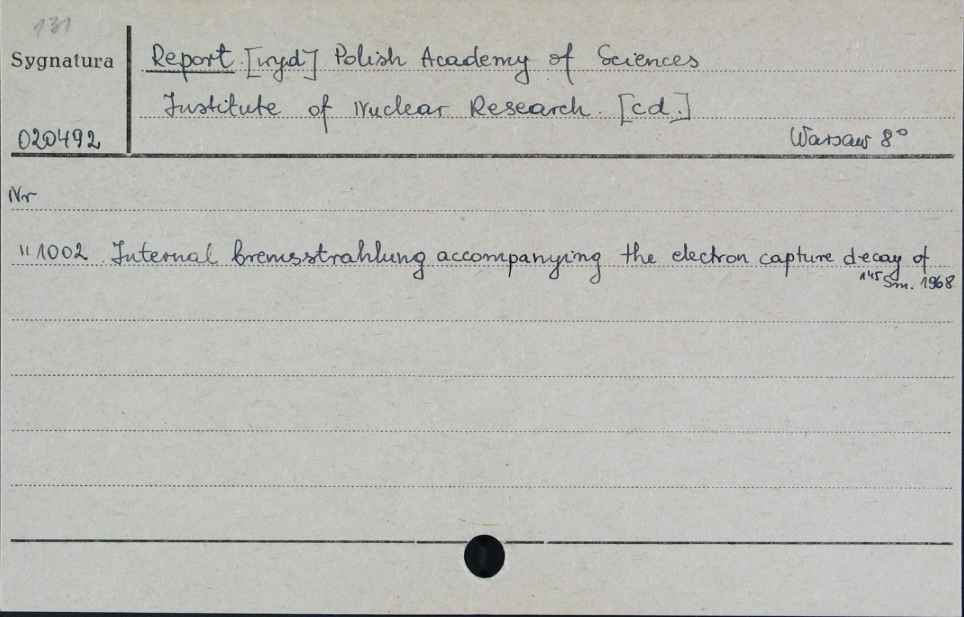 131
Sygnatura
Report [wyd] Polish Academy of Sciences
Institute of Nuclear Research. [cd.]
020492
Warsaw 8°
Nr
" 1002 Internal bremsstrahlung accompanying the electron capture decay of
¹⁴⁵Sm. 1968